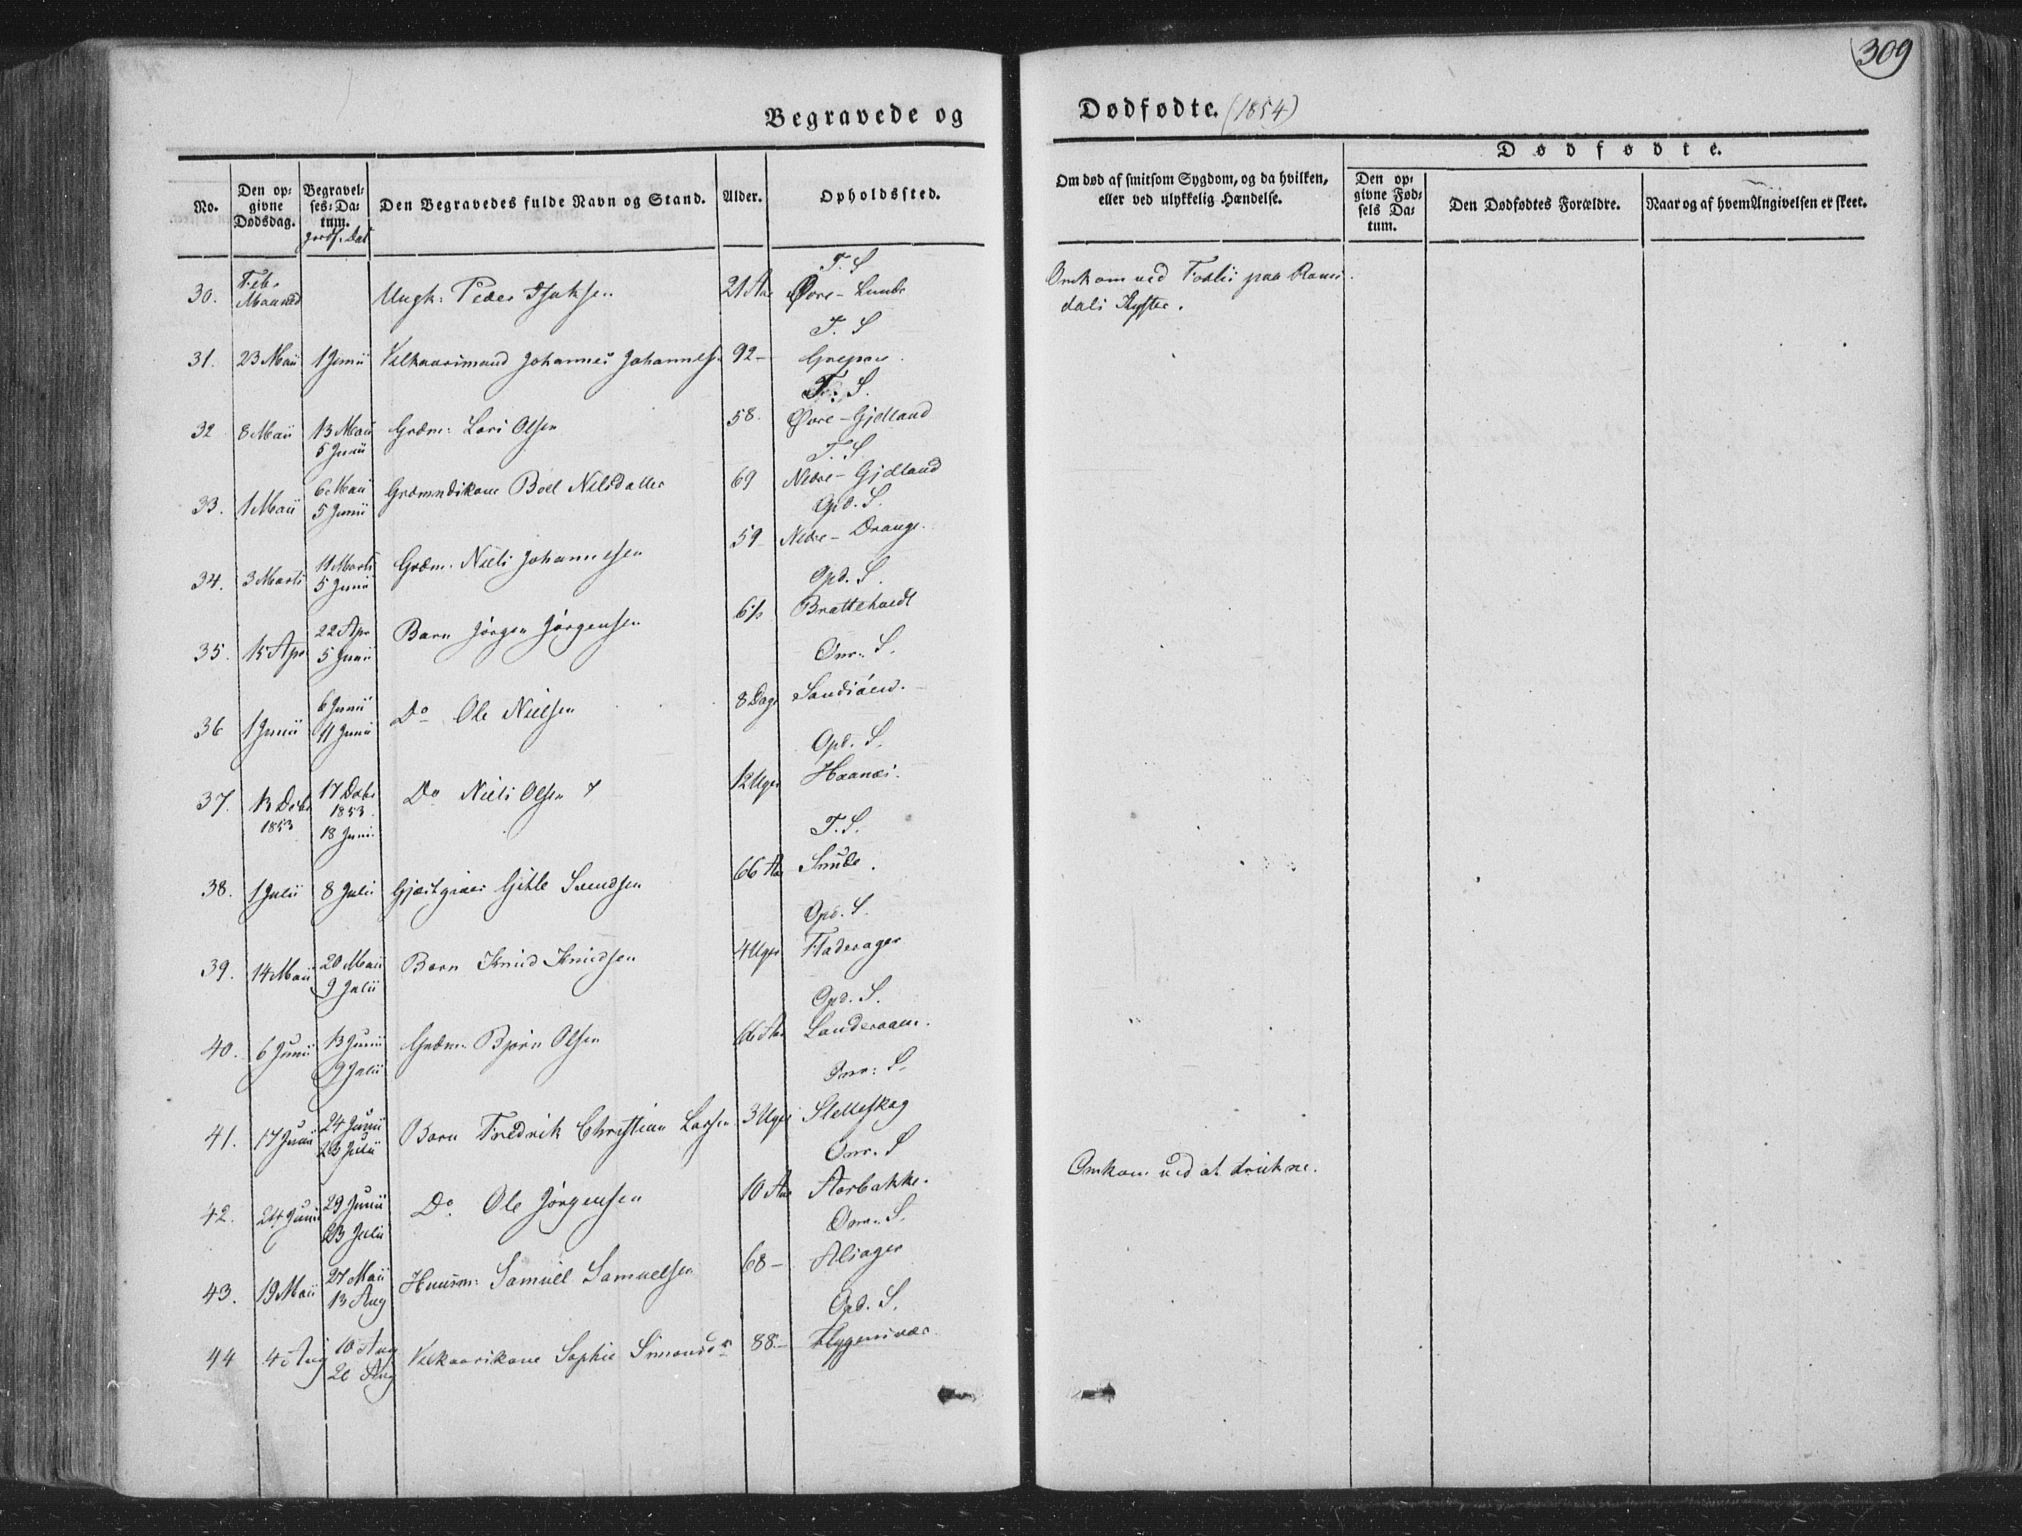 309
Begravede og
Dødfødte. (1854)
No.
Den op-
givne
Dødsdag.
Begravel-
ses-Da-
tum.
Jordf. Dat
Den Begravedes fulde Navn og Stand.
Alder.
Opholdssted.
Om død af smitsom Sygdom, og da hvilken,
eller ved ulykkelig Hændelse.
Dødfødte.
Den op-
givne Fød-
sels Da-
tum.
Den Dødfødtes Forældre.
Naar og af hvem Angivelsen er skeet.
T. S
30. Feb. Maaned Ungk: Peder Isaksen 21 Aar Øvre-Lunde
Omkom ved Fiskeri paa Roms-
dals Kyster.
T. S
31. 23 Maii 1 Junii Vilkaarsmand Johannes Johanness 92 –
T. S.
32 8 Maii 13 Maii 5 Junii Grdm: Lars Olsen 58. Øvre-Gjelland
T. S
33. 1 Maii 6 Maii 5 Junii Grdmndskone Boel Nilsdatter 69 Nedre-Gjelland
Opd. S.
34. 3 Marts 11 Marts 5 Junii Grdm. Niels Johannessen 59 Nedre-Drange
Opd. S.
35. 15 Apr 22 Apr 5 Junii Barn Jørgen Jørgensen 6 1/2 Bratteholdt
Onr: S.
36 1 Junii 6 Junii 11 Junii Do Ole Nielsen 8 Dage Sandsøen.
Opd. S.
37. 13 Debr 1853 17 Debr 1853. 18 Juni. Do Niels Olsen 12 Uger Haanæs.
T. S.
38. 1 Julii 8 Julii Gjæstgiver Gitle Svendsen 66 Aar Snude.
Opd. S.
39. 14 Maii 20 Maii 9 Julii Barn Knud Knudsen 4 Uger Fladerager
Opd. S.
40. 6 Junii 13 Junii 9 Julii Grdm: Bjørn Olsen 66 Aar Landeraaen.
Onr: S.
41. 17 Junii 24 Junii 23 Julii Barn Fredrik Christian Larsen 3 Uger Slelleskog
Onr. S
42. 24 Junii 29 Junii 23 Julii Do. Ole Jørgensen 10 Aar Aarbakke.
Omkom ved at drukne.
Onr. S.
43. 19 Maii 27 Maii 13 Aug Huusm: Samuel Samuelsen 68 – Alsager
Opd. S.
44 4 Aug 10 Aug 20 Aug Vilkaarskone Sophie Simonsdr 88 –